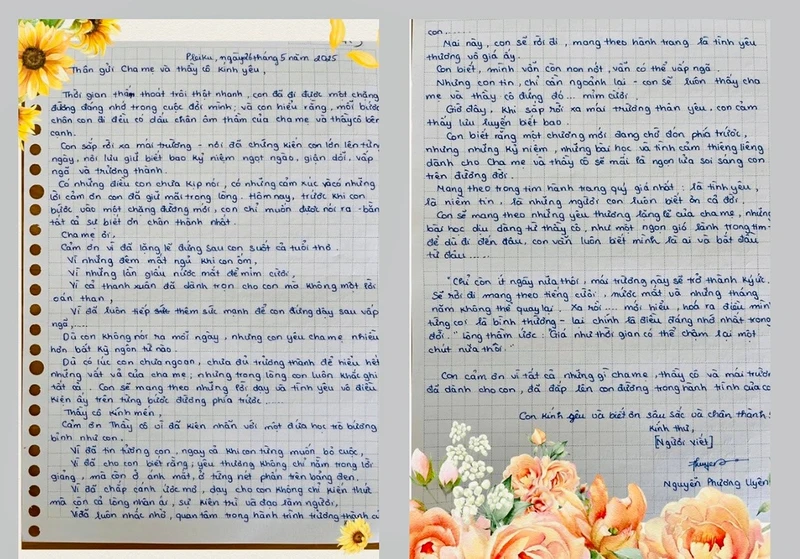 Pleiku, ngày 26 tháng 5 năm 2025
Thần gửi Cha me và thầy cô Kính yêu,
Thời gian thấm thoát trôi thật nhanh, con đã đi được một chặng
đường đáng nhớ trong cuộc đời mình; và con hiểu rằng, mỗi bước
chân con đi đều có dấu chân âm thầm của cha mẹ và thầy cô bên
cạnh.
Con sắp rời xa mái trường - nơi đã chứng kiến con lớn lên từng
ngày, nơi lưu giữ biết bao kỷ niệm ngọt ngào, giận dỗi, vấp
ngã và trưởng thành.
Có những điều con chưa kịp nói, có những cảm xúc và có những
lời cảm ơn con đã giữ mãi trong lòng. Hôm nay, trước khi con
bước vào một chặng đường mới, con chỉ muốn được nói ra - bằn
tất cả sự biết ơn chân thành nhất.
Cha mẹ ơi,
Cảm ơn vì đã lặng lẽ đứng sau con suốt cả tuổi thơ.
Vì những đêm mất ngủ khi con ốm,
Vì những lần giấu nước mắt để mỉm cười,
Vì cả thanh xuân đã dành trọn cho con mà không một lời
oán than,
Vì đã luôn tiếp thêm sức mạnh để con đứng dậy sau vấp
ngã,.....
Dù con không nói ra mỗi ngày, nhưng con yêu cha mẹ nhiều
hơn bất kỳ ngôn từ nào.
Dù có lúc con chưa ngoan, chưa đủ trưởng thành để hiểu hết
những vất vả của cha mẹ, nhưng trong lòng con luôn khắc ghi
tất cả. Con sẽ mang theo những lời dạy và tình yêu vô điều
kiện ấy trên từng bước đường phía trước.......
Thầy cô kính mến,
Cảm ơn Thầy cô vì đã kiên nhẫn với một đứa học trò bướng
bỉnh như con.
Vì đã tin tưởng con, ngay cả khi con từng muốn bỏ cuộc,
Vì đã cho con biết rằng; yêu thương không chỉ nằm trong lời
giảng, mà còn ở ánh mắt, ở từng nét phấn trên bảng đen.
Vì đã chắp cánh ước mơ, dạy cho con không chỉ kiến thức
mà còn cả lòng nhân ái, sự kiên trì và đạo làm người,
Vì đã luôn nhắc nhở, quan tâm trong hành trình trưởng thành củ
con.......
Mai này, con sẽ rời đi, mang theo hành trang là tình yêu
thương vô giá ấy.
Con biết, mình vẫn còn non nớt, vẫn có thể vấp ngã.
Nhưng con tin, chỉ cần ngoảnh lại - con sẽ luôn thấy cha
mẹ và thầy cô đứng đó ... mỉm cười.
Giờ đây, khi sắp rời xa mái trường thân yêu, con cảm
thấy lưu luyến biết bao.
Con biết rằng một chương mới đang chờ đón phía trước,
nhưng những kỷ niệm, những bài học và tình cảm thiêng liêng
dành cho Cha mẹ và thầy cô sẽ mãi là ngọn lửa soi sáng con
trên đường đời.
Mang theo trong tim hành trang quý giá nhất: là tình yêu,
là niềm tin, là những người con luôn biết ơn cả đời.
Con sẽ mang theo những yêu thương lặng lẽ của cha mẹ, những
bài học dịu dàng từ thầy cô, như một ngọn gió lành trong tim-
để dù đi đến đâu, con vẫn luôn biết mình là ai và bắt đầu
từ đâu.....
"Chỉ còn ít ngày nữa thôi, mái trường này sẽ trở thành ký ức.
Sẽ rời đi mang theo tiếng cười, nước mắt và những tháng
năm không thể quay lại. Xa rồi.... mới hiểu, hoá ra điều mìn
từng coi là bình thường - lại chính là điều đáng nhớ nhất tron
đời." lòng thầm ước: Giá như thời gian có thể chậm lại một
chút nữa thôi."
Con cảm ơn vì tất cả những gì cha mẹ, thầy cô và mái trườn
đã dành cho con, đã đắp lên con đường trong hành trình của co
Con kính yêu và biết ơn sâu sắc và chân thành!
Kính thư,
[Người Viết]
Nguyễn Phương Uyên